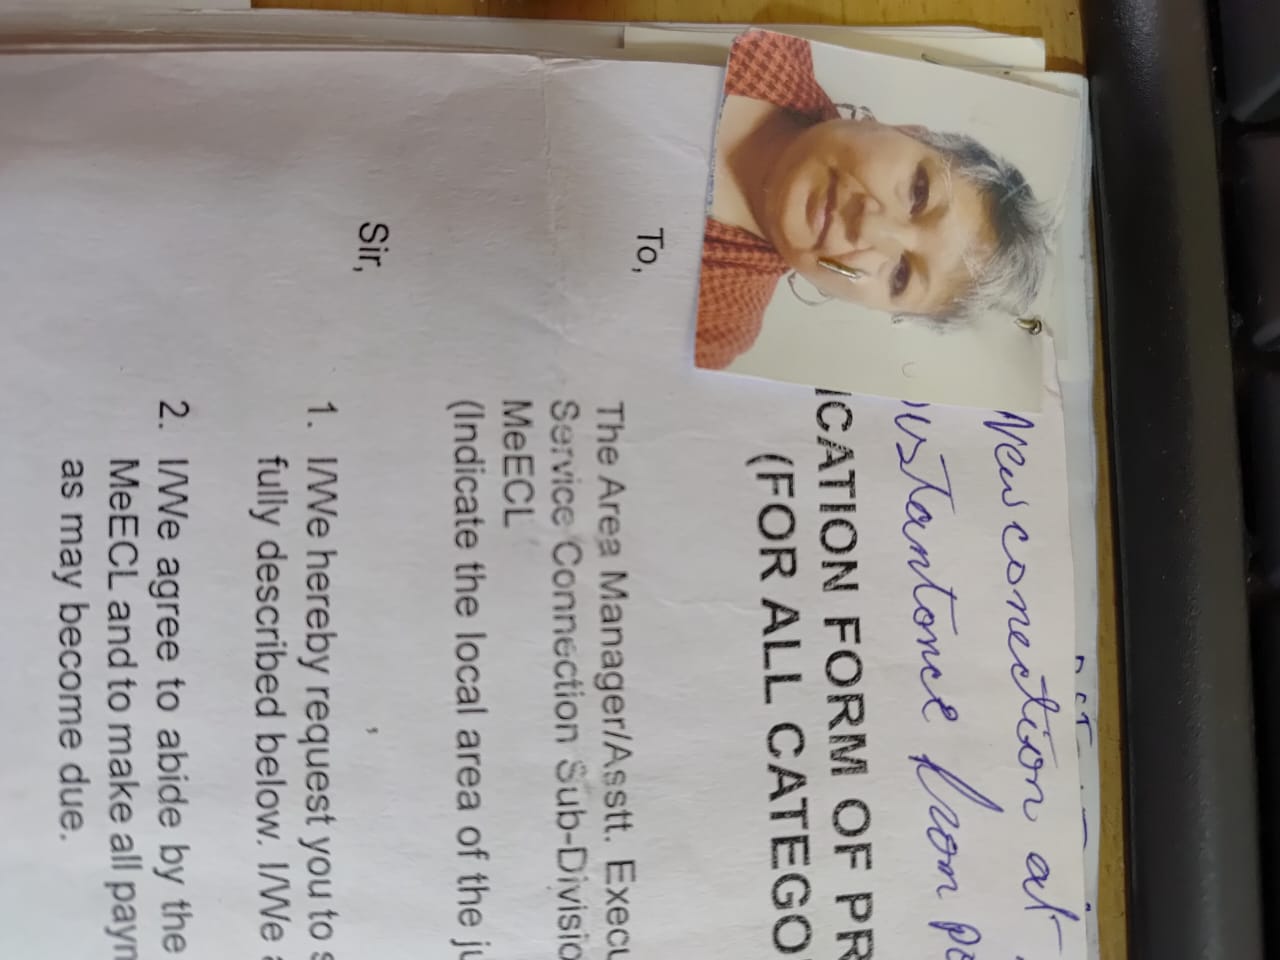 New conection at
Distantonce from po
ICATION FORM OF PR
(FOR ALL CATEGO
To,
The Area Manager/Asstt. Execu
Service Connection Sub-Divisio
MeECL
(Indicate the local area of the ju
Sir,
1. I/We hereby request you to s
fully described below. I/We a
2. I/We agree to abide by the
MeECL and to make all paym
as may become due.